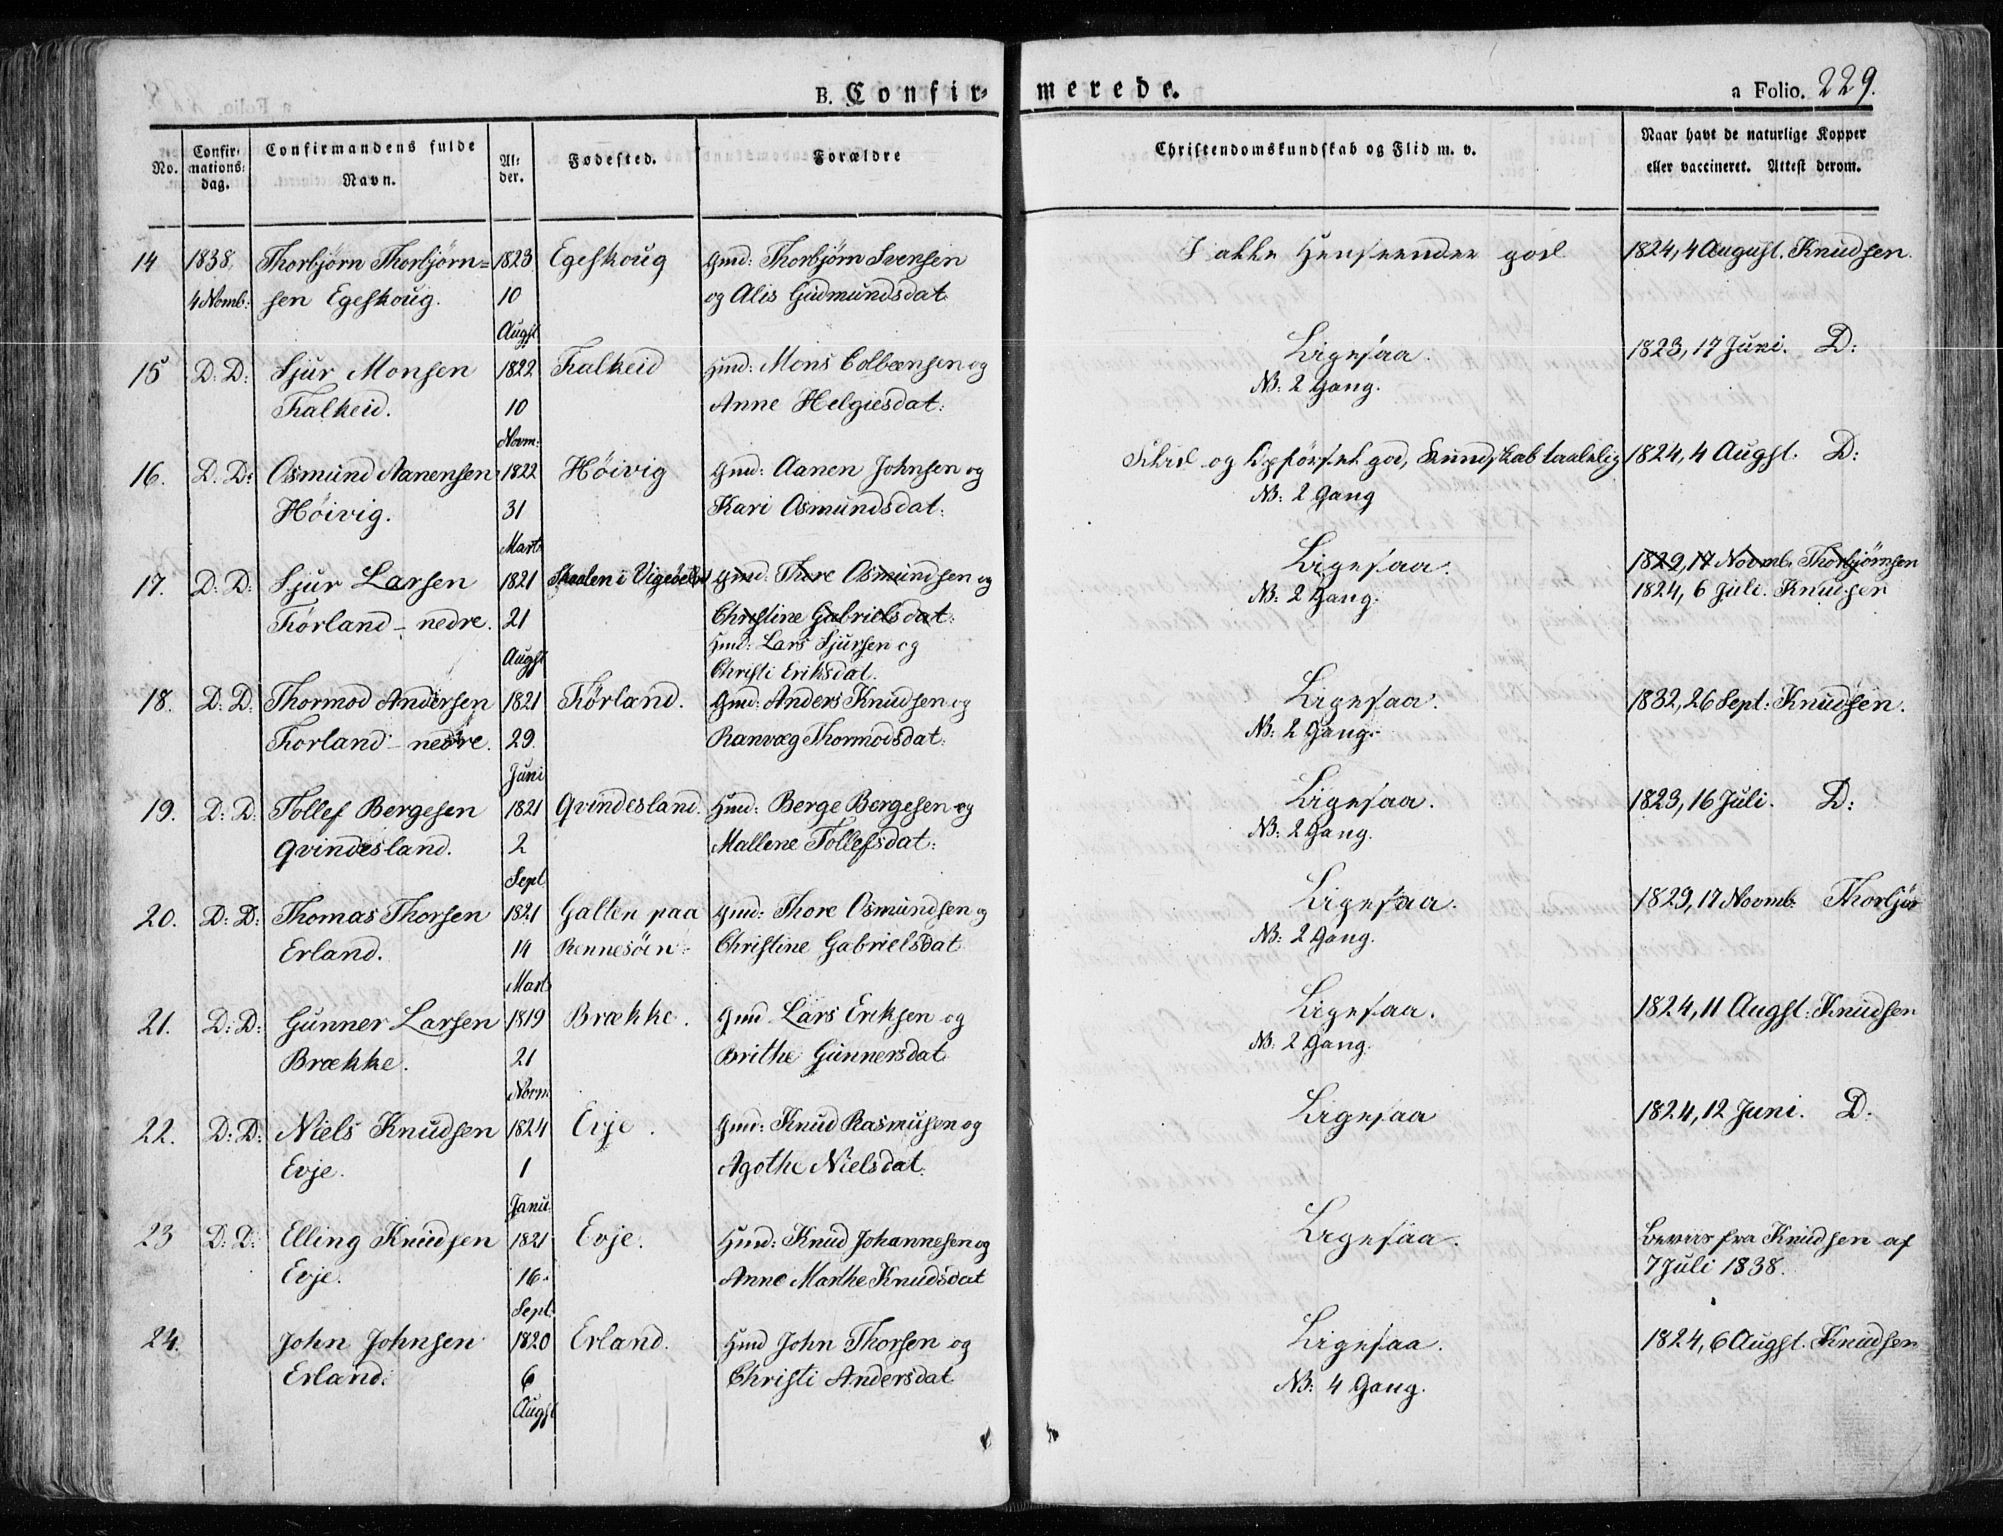 B. Confir-
merede.
a Folio. 229.
No.
Confir-
mations-
dag.
Confirmandens fulde
Navn.
Al-
der.
Fødested.
Forældre
Christendomskundskab og Flid m. v.
Naar havt de naturlige Kopper
eller vaccineret. Attest derom.
14 1838, Thorbjørn Thorbjørn= 1823 Egeskoug Gmd: Thorbjørn Svensen I alle Henseender god 1824, 4 August. Knudsen.
4 Novmb: sen Egeskoug. 10 og Alis Gudmundsdat:
Augst
15 D: D: Sjur Monsen 1822 Falkeid Hmd: Mons Colbensen og Ligesaa. 1823, 17 Juni. D:
Falkeid. 10 Anne Helgiesdat: NB: 2 Gang.
Novm:
16. D. D: Osmund Aanensen 1822 Høivig Gmd: Aanen Johnsen og Flid og Opførsel god, Kundskab taalelig 1824, 4 Augst. D:
Høivig. 31 Kari Osmundsdat: NB: 2 Gang
Marts
17. D: D: Sjur Larsen 1821 Gmd: Thore Osmundsen og Ligesaa. 1829, 17 Novmb. Thorbjørnsen
Førland - nedre. 21 Christine Gabrielsdat: NB: 2 Gang. 1824, 6 Juli. Knudsen
Hmd: Lars Sjursen og
Augst Christi Eriksdat.
18. D: D: Thormod Andersen 1821 Førland. Gmd: Anders Knudsen og Ligesaa. 1832, 26 Sept: Knudsen.
Førland - nedre. 29. Ranvæg Thormodsdat: NB: 2 Gang.
Juni
19. D: D: Tollef Bergesen 1821 Qvindesland. Hmd: Berge Bergesen og Ligesaa. 1823, 16 Juli. D:
Qvindesland. 2 Mallene Tollefsdat: NB: 2 Gang.
Sept
20. D: D: Thomas Thorsen 1821 Galten paa Gmd: Thore Osmundsen og Ligesaa. 1829, 17 Novmb: Thorbjør
Erland. 14 Rennesöen: Christine Gabrielsdat NB: 2 Gang.
Mart
21. D: D: Gunner Larsen 1819 Brække. Gmd Lars Eriksen og Ligesaa. 1824, 11 Augst: Knudsen
Brække. 21 Brithe Gunnersdat NB: 2 Gang.
Novm:
22. D: D: Niels Knudsen 1824 Evje. Gmd: Knud Rasmusen og Ligesaa 1824, 12 Juni. D:
Evje. 1 Agothe Nielsdat.
Janu:
23 D: D: Elling Knudsen 1821 Evje. Hmd: Knud Johannesen og Ligesaa. Beviis fra Knudsen af
Evje. 16. Anne Marthe Knudsdat 7 Juli 1838.
Sept:
24. John Johnsen 1820 Erland. Hmd John Thorsen og Ligesaa. 1824, 6 Augst. Knudsen
Erland. 6 Christi Andersdat NB: 4 Gang.
Augst